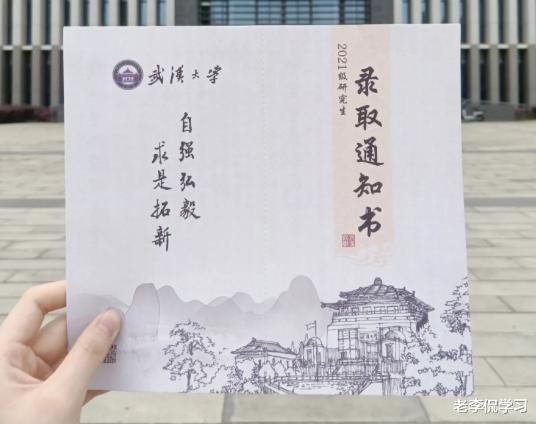 武汉大学
自强弘毅
求是拓新
2021级研究生
录取通知书
老李侃学习